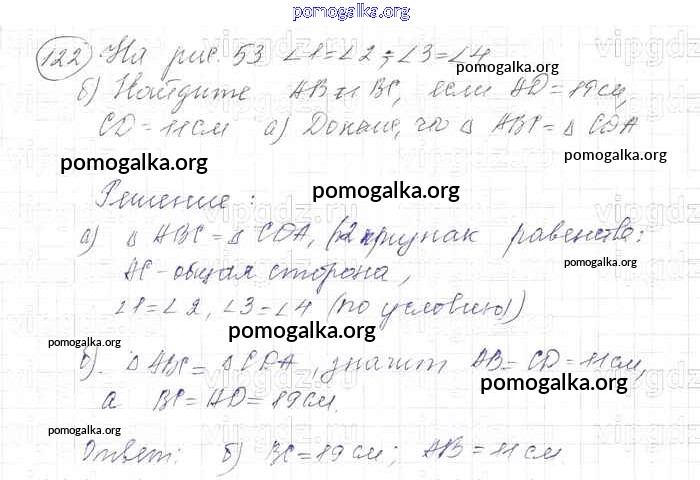 pomogalka.org
122 На рис. 53 ∠1=∠2; ∠3=∠4
pomogalka.org
б) Найдите AB и BC, если AD=19см,
CD=11см а) Докаж, что △ ABC=△ CDA
pomogalka.org
pomogalka.org
pomogalka.org
Решение:
а) △ ABC=△ CDA, (2 признак равенства:
pomogalka.org
AC-общая сторона,
∠1=∠2, ∠3=∠4 (по условию)
pomogalka.org
pomogalka.org
б). △ ABC= △ CDA, значит AB=CD=11см,
pomogalka.org
а BC=AD=19см.
pomogalka.org
Ответ: б) BC=19см; AB=11см